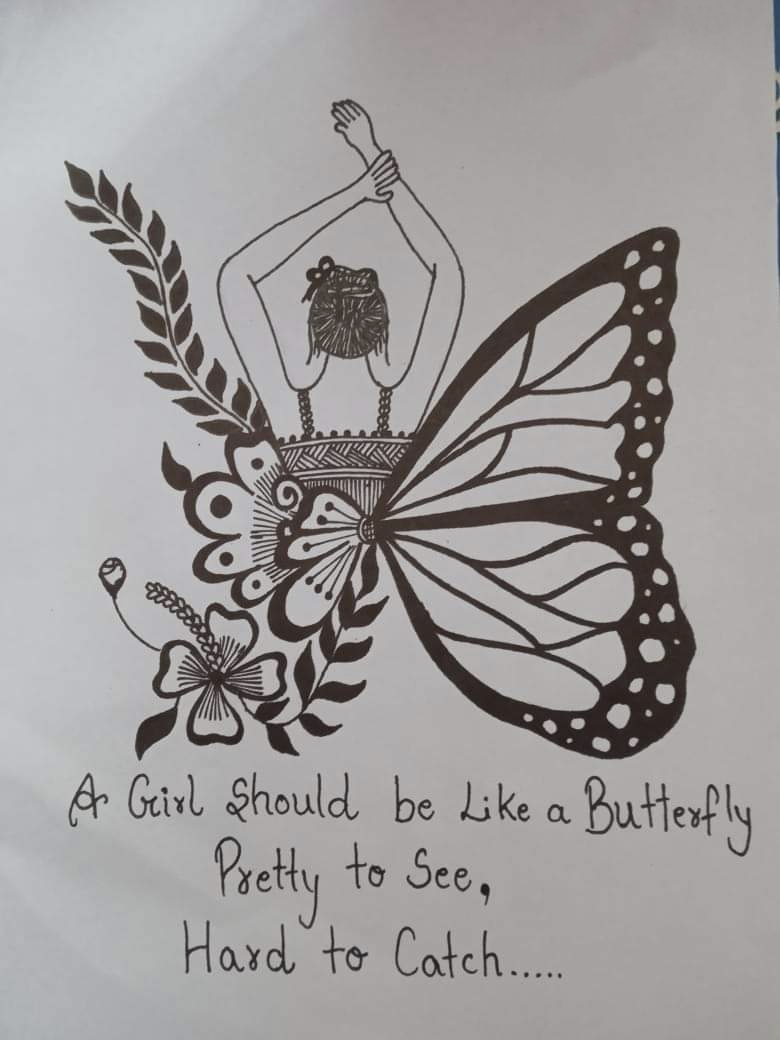 A Girl Should be Like a Butterfly
Pretty to See,
Hard to Catch.....